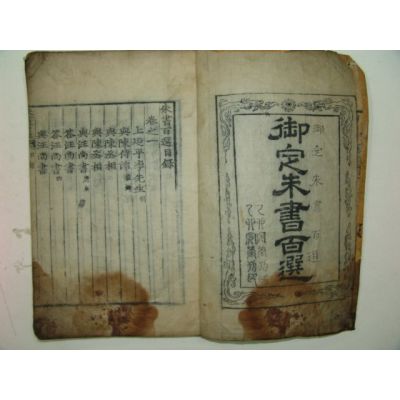 御定朱書百選
御定朱書百選
朱書百選目錄
卷之一
上延平李先生
與陳侍郎
與陳丞相
與陳丞相
與汪尚書
答汪尚書
答汪尚書
與汪尚書